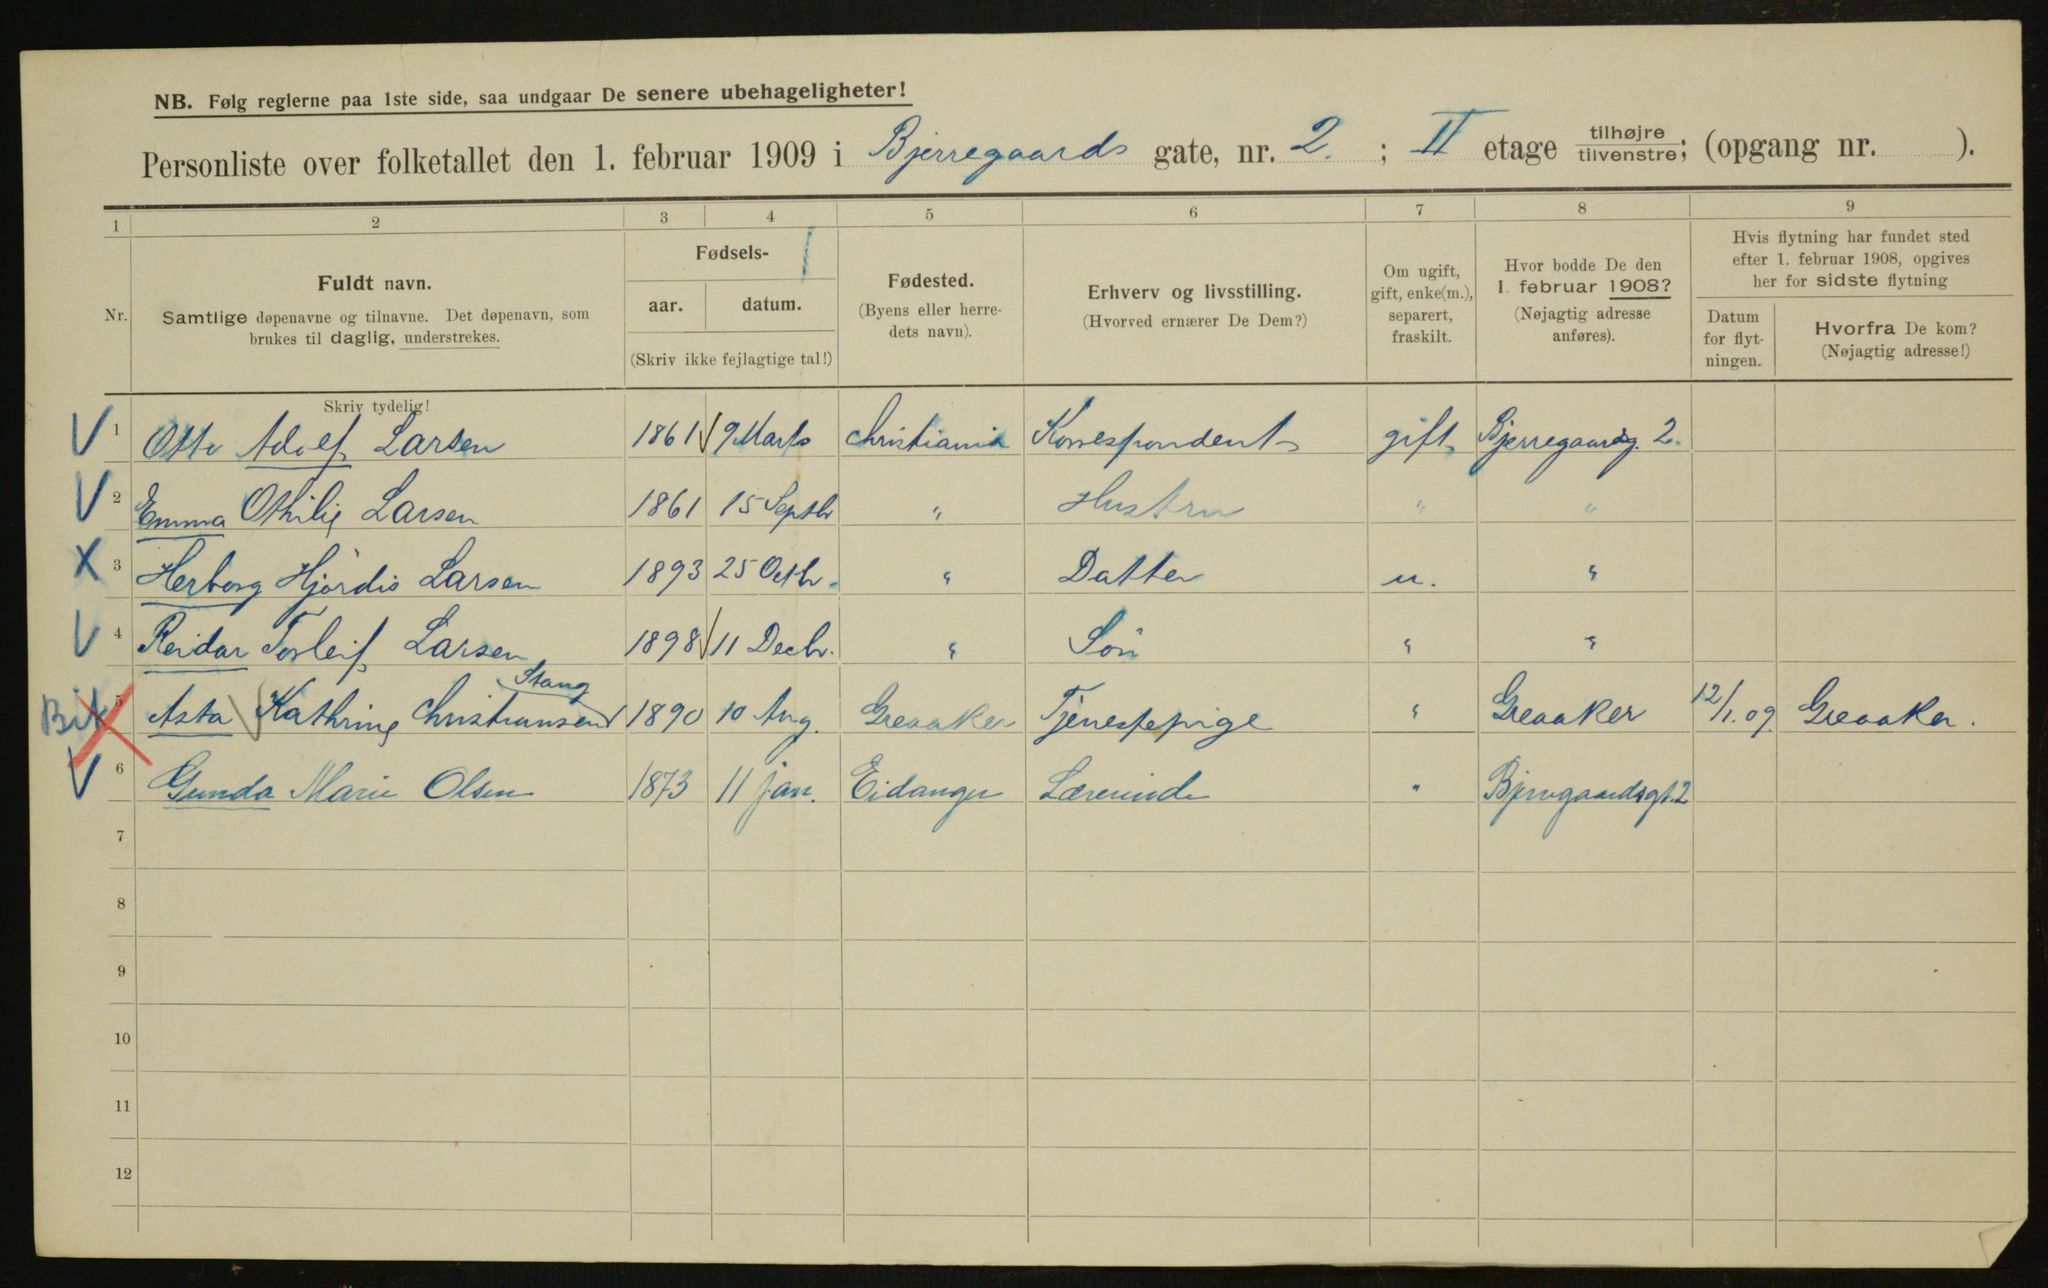 NB. Følg reglerne paa 1ste side, saa undgaar De senere ubehageligheter!
Personliste over folketallet den 1. februar 1909 i Bjerregaards gate, nr. 2. ; II etage tilhøjre tilvenstre; (opgang nr. ).
1 2 3 4 5 6 7 8 9
Nr.
Fuldt navn.
Samtlige døpenavne og tilnavne. Det døpenavn, som
brukes til daglig, understrekes.
Skriv tydelig!
Fødsels-
aar. datum.
(Skriv ikke fejlagtige tal!)
Fødested.
(Byens eller herre-
dets navn).
Erhverv og livsstilling.
(Hvorved ernærer De Dem?)
Om ugift,
gift, enke(m.),
separert,
fraskilt.
Hvor bodde De den
1. februar 1908?
(Nøjagtig adresse
anføres).
Hvis flytning har fundet sted
efter 1. februar 1908, opgives
her for sidste flytning
Datum
for flyt-
ningen.
Hvorfra De kom?
(Nøjagtig adresse!)
V 1 Otto Adolf Larsen 1861 9 Marts Christiania Korrespondent gift Bjerregaardsg. 2.
V 2 Emma Othilie Larsen 1861 15 Septbr " Hustru " "
X 3 Herborg Hjördis Larsen 1893 25 Octbr. " Datter u. "
V 4 Reidar Torleif Larsen 1898 11 Decbr. " Sön " "
Stang
5 Asta Kathrine Christiansen 1890 10 Aug. Greaaker Tjenestepige " Greaaker 12/1.09. Greaaker.
V 6 Gunda Marie Olsen 1873 11 jan. Eidanger Lærerinde " Bjerregaardsgt. 2
7
8
9
10
11
12